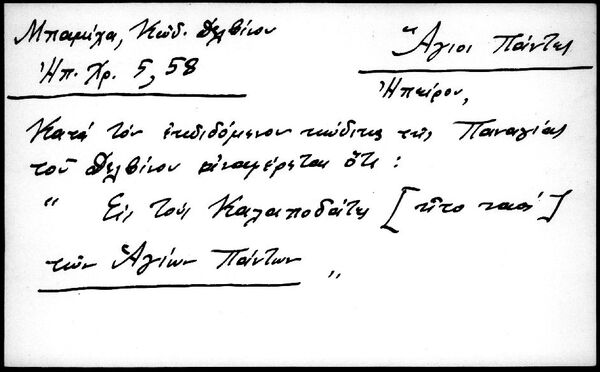 Μπαμίχα, Κώδ. Δελβίνου
Ἠπ. Χρ. 5, 58
Ἅγιοι Πάντες
Ἠπείρου,
Κατά τόν ἐκδιδόμενον κώδικα τῆς Παναγίας
τοῦ Δελβίνου ἀναφέρεται ὅτι :
" Εἰς τούς Καλαποδάτες [ ἦτο ναός ]
τῶν Ἁγίων Πάντων "